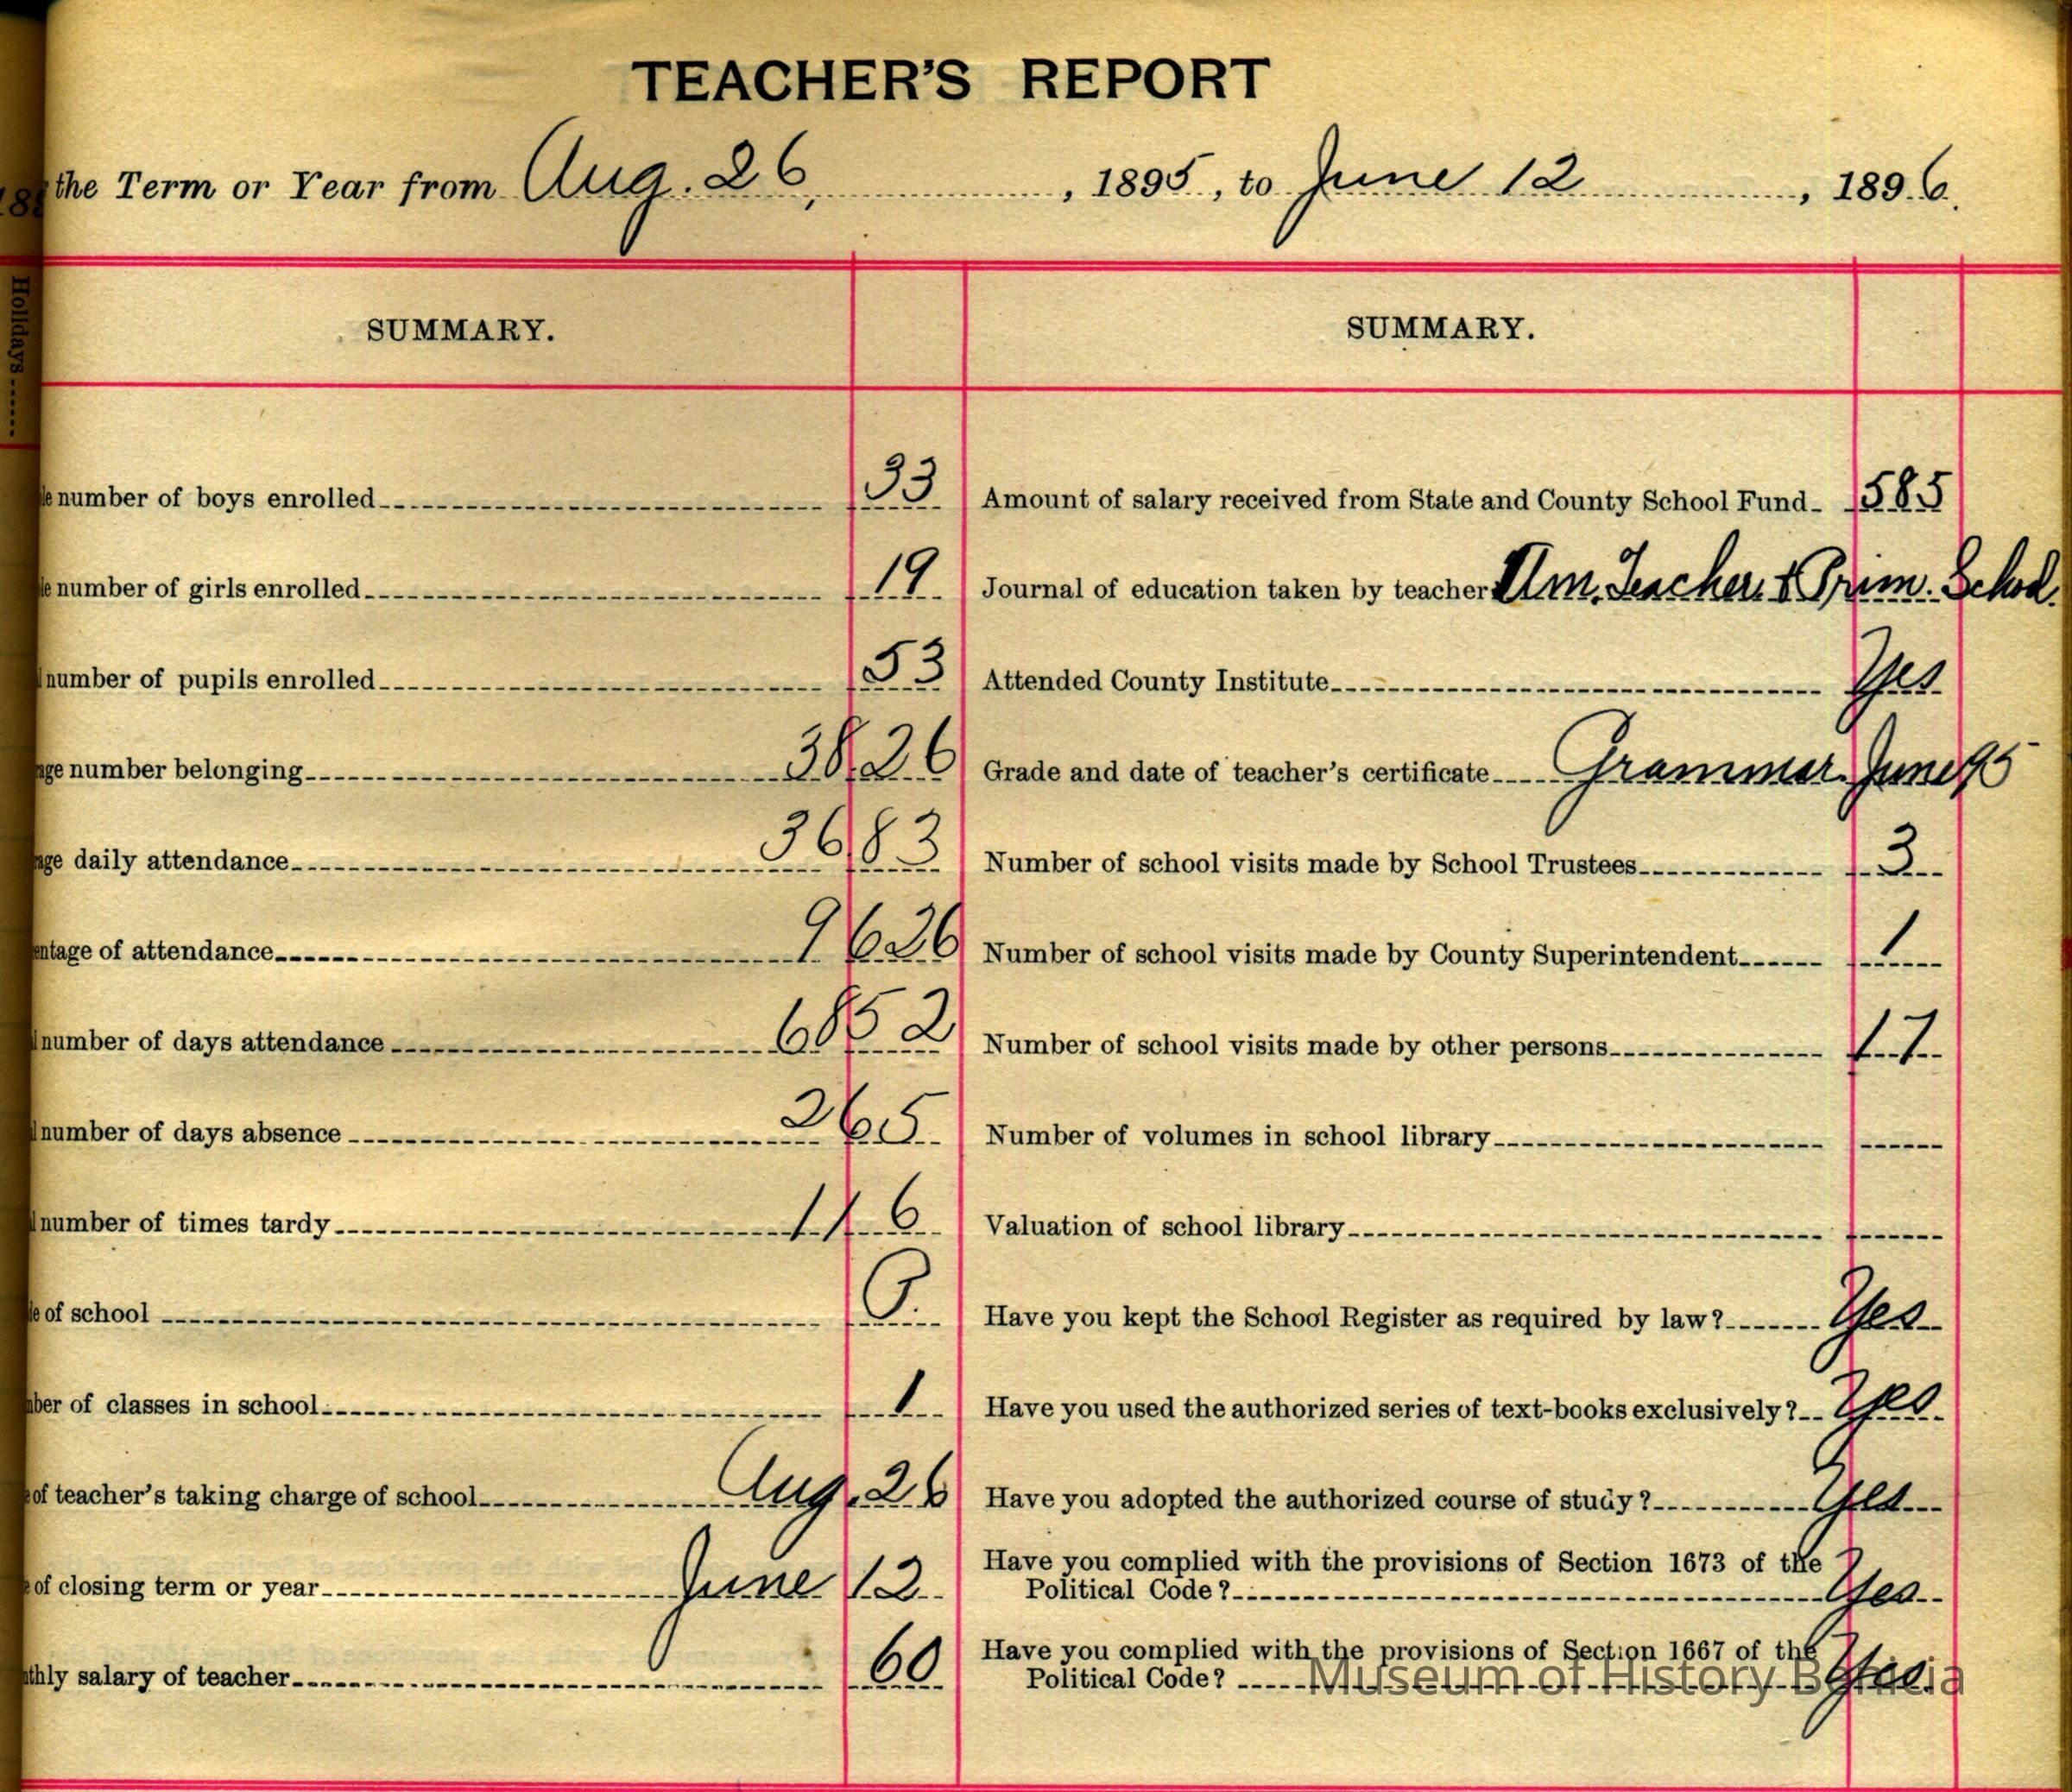 TEACHER'S REPORT
the Term or Year from Aug. 26, , 1895, to June 12 , 1896.
Holidays
SUMMARY.
number of boys enrolled 33
number of girls enrolled 19
number of pupils enrolled 53
number belonging 38.26
daily attendance 36 83
of attendance 96 26
number of days attendance 6852
number of days absence 265
number of times tardy 116
of school P.
of classes in school 1
of teacher's taking charge of school Aug. 26
of closing term or year June 12
salary of teacher 60
SUMMARY.
Amount of salary received from State and County School Fund 585
Journal of education taken by teacher Am. Teacher & Prim. School.
Attended County Institute Yes
Grade and date of teacher's certificate Grammar June 95
Number of school visits made by School Trustees 3
Number of school visits made by County Superintendent 1
Number of school visits made by other persons 17
Number of volumes in school library
Valuation of school library
Have you kept the School Register as required by law? Yes
Have you used the authorized series of text-books exclusively? Yes
Have you adopted the authorized course of study? Yes
Have you complied with the provisions of Section 1673 of the
Political Code? Yes
Have you complied with the provisions of Section 1667 of the
Political Code? Yes
Museum of History Benicia